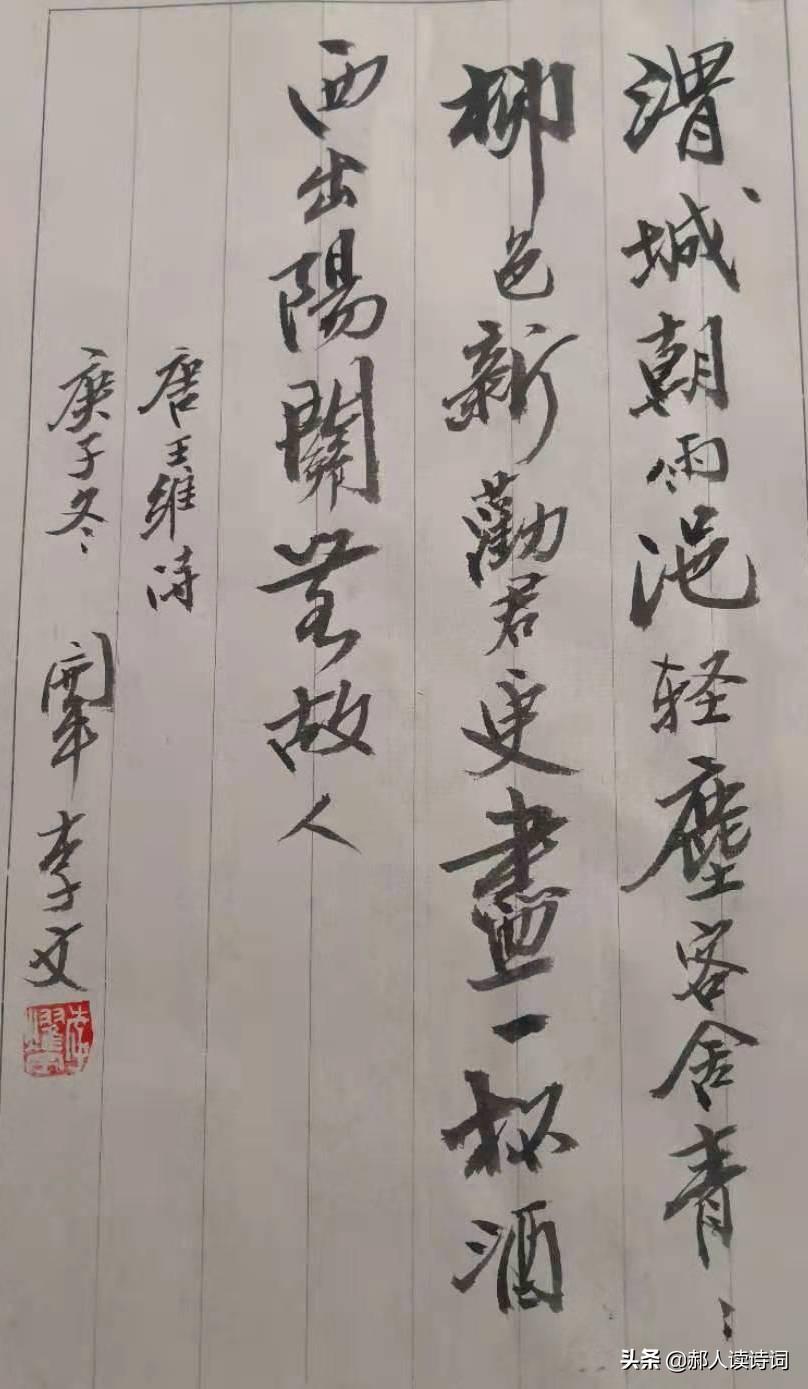 渭城朝雨浥轻塵客舍青〻
柳色新勸君更盡一杯酒
西出陽關無故人
唐王維诗
庚子冬 李文
头条 @郝人读诗词